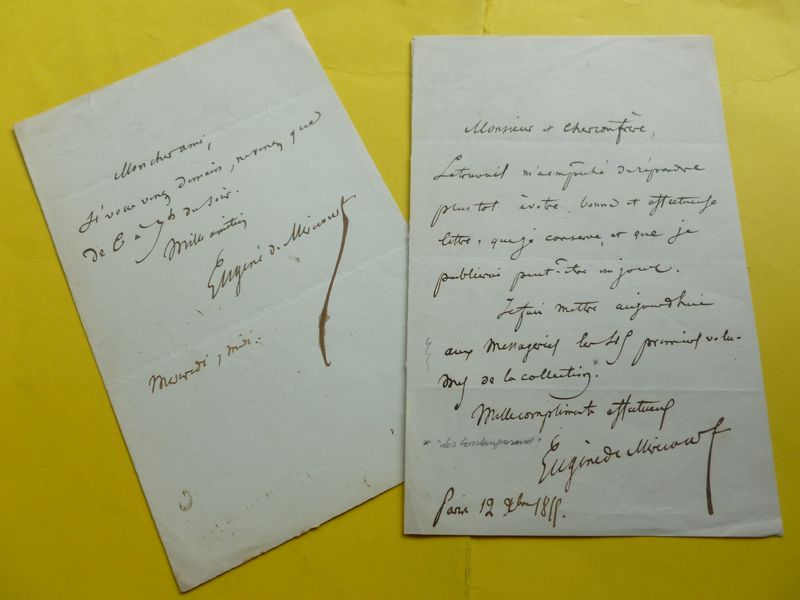 Mon cher ami,
Si vous venez demain, ne venez que
de 6 à 7 h du soir.
Mille amitiés
Eugène de Mirecourt
Mercredi, midi.
Monsieur et cher confrère,
Le travail m'a empêché de répondre
plus tôt à votre bonne et affectueuse
lettre, que je conserve, et que je
publierai peut-être un jour.
Je fais mettre aujourd'hui
aux Messageries les 45 premiers volu-
mes de la collection.
Mille compliments affectueux
* "Les Contemporains"
Eugène de Mirecourt
Paris 12 Xbre 1855.